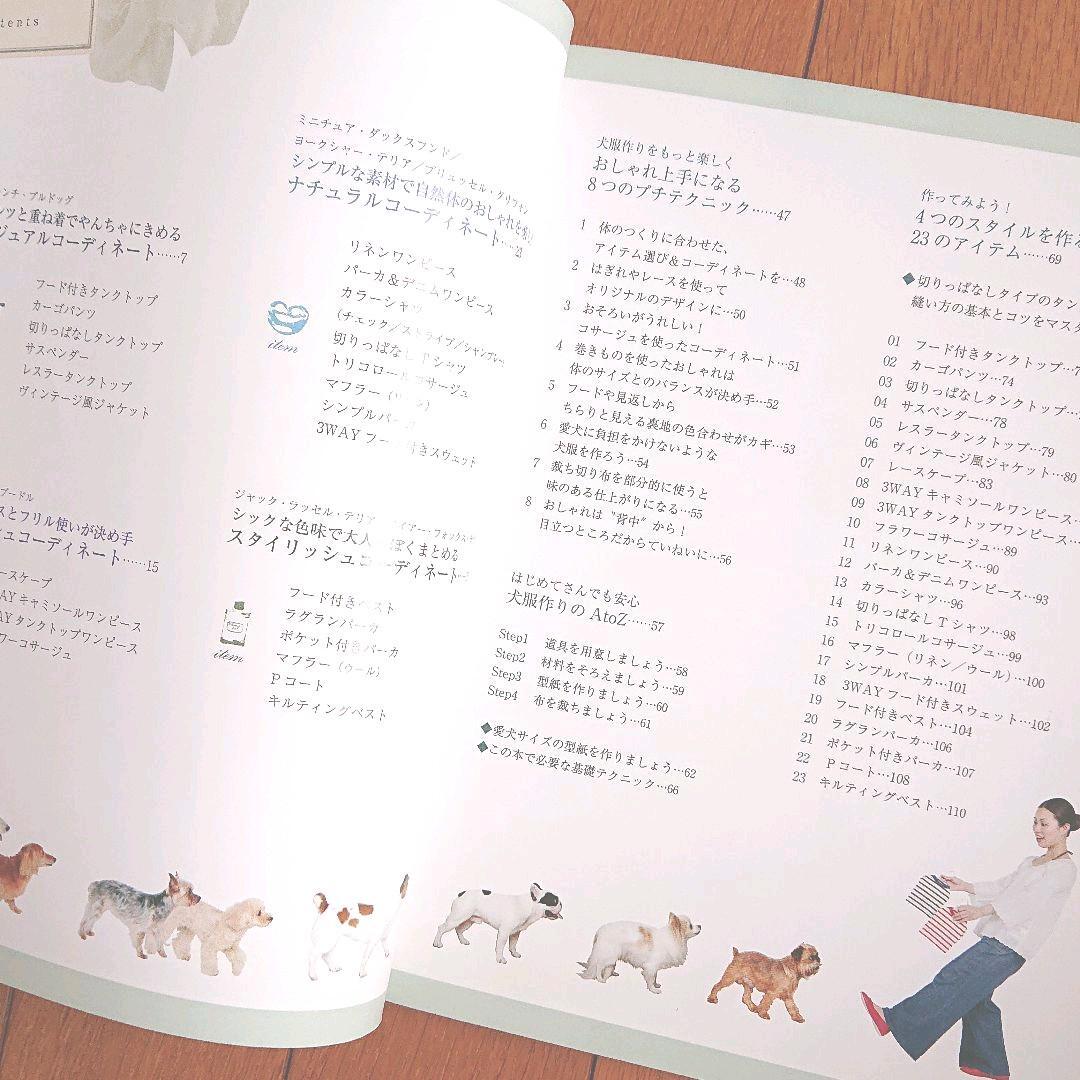 tents
ンチ・ブルドッグ
ンツと重ね着でやんちゃにきめる
ジュアルコーディネート……7
フード付きタンクトップ
カーゴパンツ
切りっぱなしタンクトップ
サスペンダー
レスラータンクトップ
ヴィンテージ風ジャケット
プードル
スとフリル使いが決め手
シュコーディネート……15
ースケープ
AYキャミソールワンピース
AYタンクトップワンピース
ワーコサージュ
ミニチュア・ダックスフンド／
ヨークシャー・テリア／ブリュッセル・グリフォン
シンプルな素材で自然体のおしゃれを
ナチュラルコーディネート……23
リネンワンピース
パーカ&デニムワンピース
カラーシャツ
(チェック／ストライプ／シャンブレー
切りっぱなしTシャツ
トリコロールコサージュ
マフラー（リネン）
シンプルパーカ
3WAYフード付きスウェット
item
ジャック・ラッセル・テリア
シックな色味で大人っぽくまとめる
スタイリッシュコーディネート
フード付きベスト
ラグランパーカ
ポケット付きパーカ
マフラー（ウール）
Pコート
キルティングベスト
item
犬服作りをもっと楽しく
おしゃれ上手になる
8つのプチテクニック……47
1 体のつくりに合わせた、
アイテム選び&コーディネートを…48
2 はぎれやレースを使って
オリジナルのデザインに…50
3 おそろいがうれしい！
コサージュを使ったコーディネート…51
4 巻きものを使ったおしゃれは
体のサイズとのバランスが決め手…52
5 フードや見返しから
ちらりと見える裏地の色合わせがカギ…53
6 愛犬に負担をかけないような
犬服を作ろう…54
7 裁ち切り布を部分的に使うと
味のある仕上がりになる…55
8 おしゃれは“背中”から！
目立つところだからていねいに…56
はじめてさんでも安心
犬服作りの AtoZ……57
Step1 道具を用意しましょう…58
Step2 材料をそろえましょう…59
Step3 型紙を作りましょう…60
Step4 布を裁ちましょう…61
◆愛犬サイズの型紙を作りましょう…62
◆この本で必要な基礎テクニック…66
作ってみよう！
4つのスタイルを作る
23のアイテム……69
◆切りっぱなしタイプのタン
縫い方の基本とコツをマスタ
01 フード付きタンクトップ…7
02 カーゴパンツ…74
03 切りっぱなしタンクトップ…
04 サスペンダー…78
05 レスラータンクトップ…79
06 ヴィンテージ風ジャケット…80
07 レースケープ…83
08 3WAYキャミソールワンピース…
09 3WAYタンクトップワンピース…
10 フラワーコサージュ…89
11 リネンワンピース…90
12 パーカ&デニムワンピース…93
13 カラーシャツ…96
14 切りっぱなしTシャツ…98
15 トリコロールコサージュ…99
16 マフラー（リネン／ウール）…100
17 シンプルパーカ…101
18 3WAYフード付きスウェット…102
19 フード付きベスト…104
20 ラグランパーカ…106
21 ポケット付きパーカ…107
22 Pコート…108
23 キルティングベスト…110